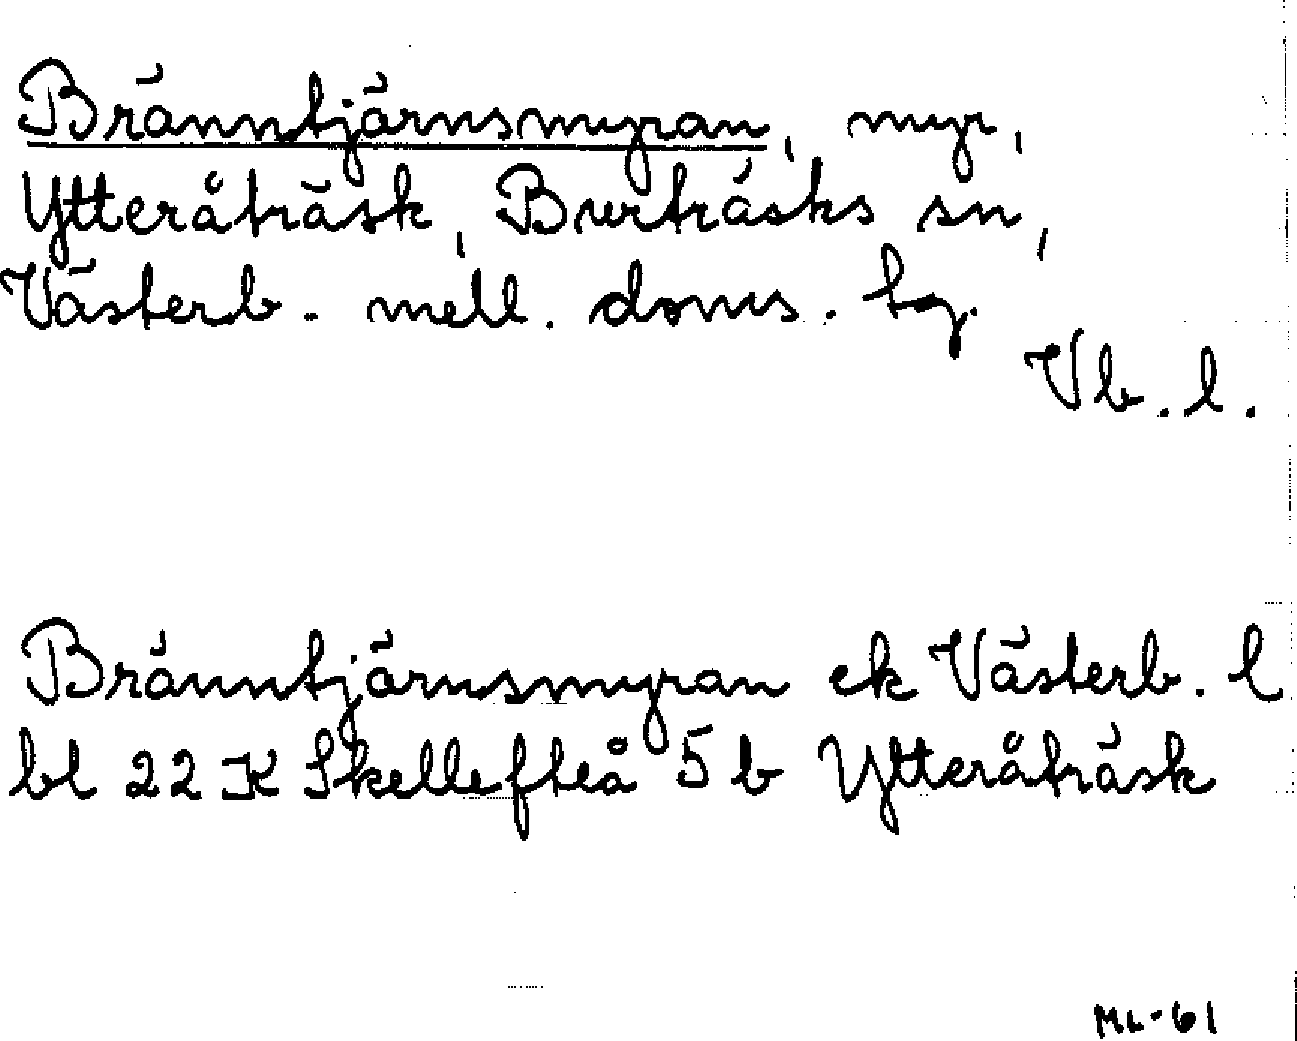 Bränntjärnsmyran, myr,
Ytteråträsk, Burträsks sn,
Västerb. mell. doms. tg.
Vb. l.
Bränntjärnsmyran ek Västerb. l
bl 22 K Skellefteå 5 b Ytteråträsk
ML-61